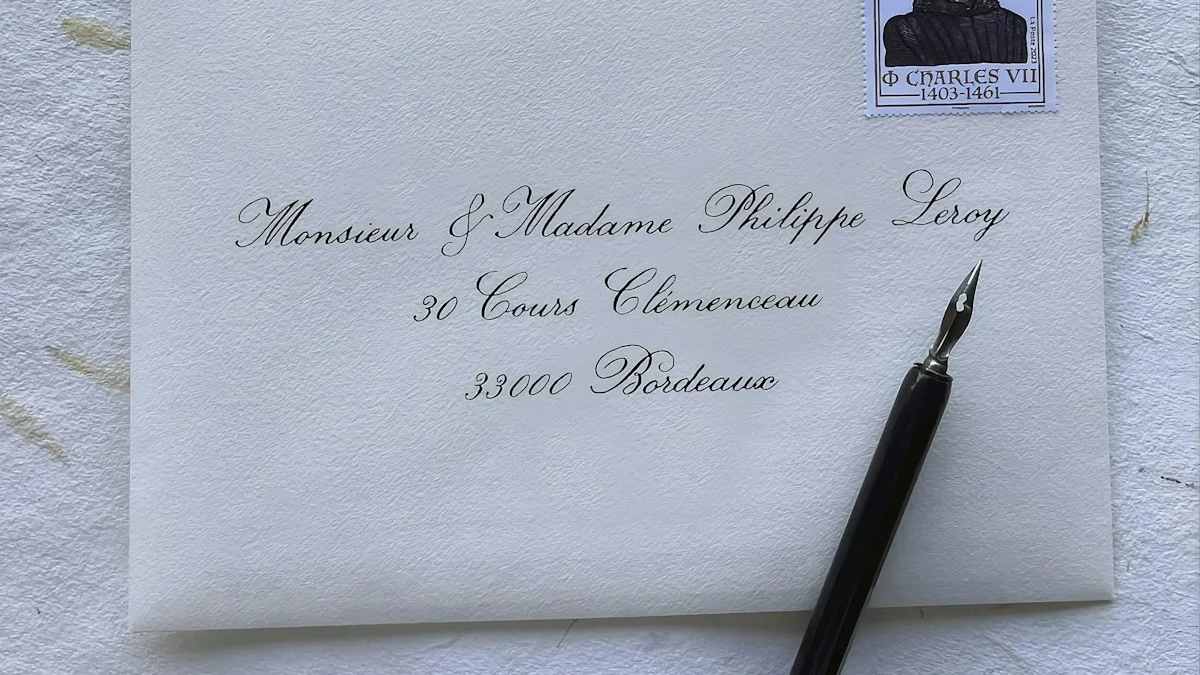 La Poste 2023
Φ CHARLES VII
1403-1461
Monsieur & Madame Philippe Leroy
30 Cours Clémenceau
33000 Bordeaux